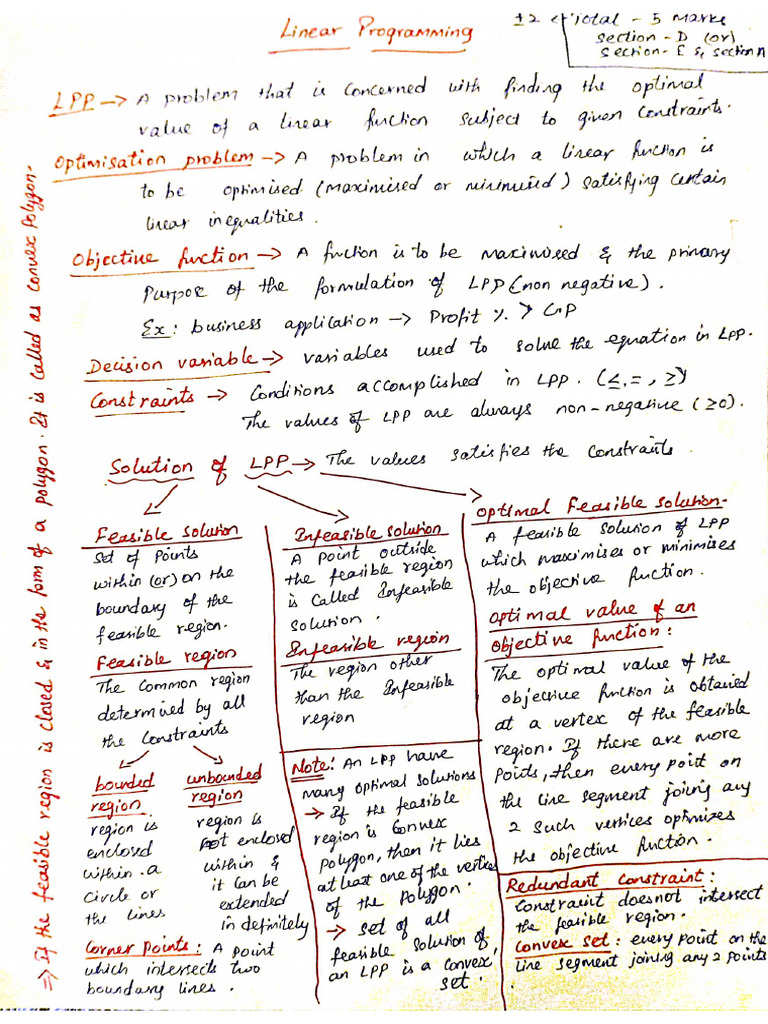 Linear Programming
+2 Total - 5 Marks
Section - D (or)
Section - E
LPP → A problem that is concerned with finding the optimal
value of a linear function subject to given constraints.
Optimisation problem → A problem in which a linear function is
to be optimised (maximised or minimised) satisfying certain
linear inequalities.
Objective function → A function is to be maximised & the primary
Purpose of the formulation of LPP (non negative).
Ex: business application → Profit % > CP
Decision variable → variables used to solve the equation in LPP.
Constraints → Conditions accomplished in LPP. (≤, =, ≥)
The values of LPP are always non-negative (≥0).
Solution of LPP → The values satisfies the constraints.
Feasible solution
Set of Points
within (or) on the
boundary of the
feasible region.
Feasible region
The Common region
determined by all
the Constraints
bounded
region
region is
enclosed
within a
Circle or
the lines
unbounded
region
region is
not enclosed
within &
it can be
extended
indefinitely
Corner points: A point
which intersects two
boundary lines.
Infeasible solution
A point outside
the feasible region
is called Infeasible
solution.
Infeasible region
The region other
than the Infeasible
region
Note: An LPP have
many optimal solutions
→ If the feasible
region is Convex
polygon, than it lies
atleast one of the vertices
of the Polygon.
→ Set of all
feasible solution of
an LPP is a convex
set.
Optimal Feasible solution.
A feasible solution of LPP
which maximises or minimises
the objective function.
Optimal value of an
Objective function:
The optimal value of the
objective function is obtained
at a vertex of the feasible
region. If there are more
Points, then every point on
the line segment joining any
2 such vertices optimizes
the objective function.
Redundant Constraint:
Constraint doesnot intersect
the feasible region.
Convex set: every point on the
line segment joining any 2 points
.
⇒ If the feasible region is closed & in the form of a polygon. It is called as Convex Polygon.